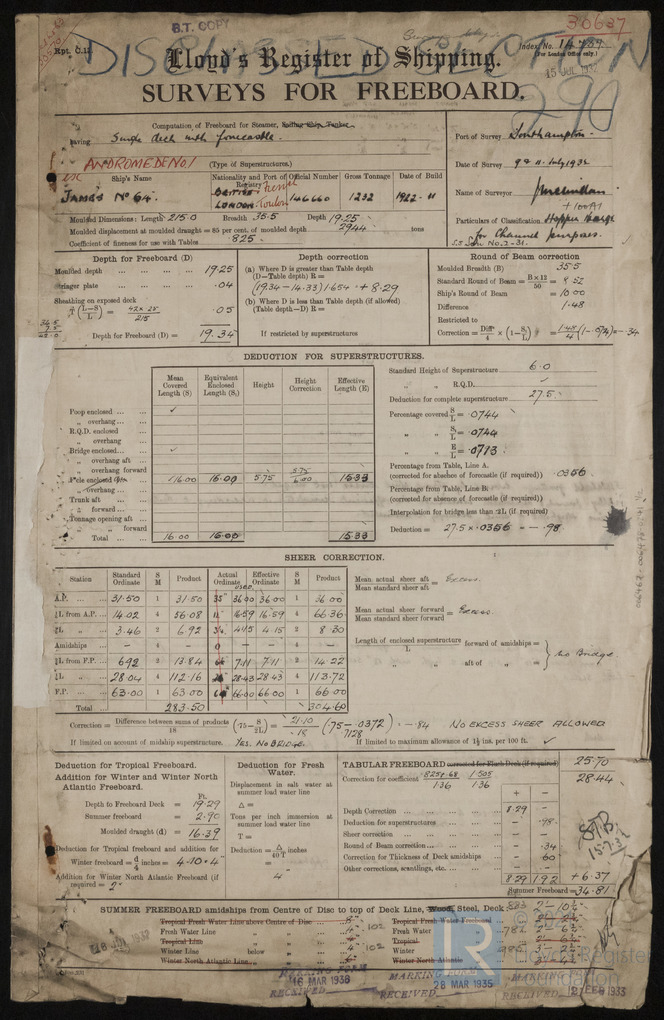 B.T. COPY
30637
Rpt. C.11.
DISCLASSED SECTION
Lloyd's Register of Shipping.
Index. No. 14739
(For London Office only.)
15 JUL 1932
SURVEYS FOR FREEBOARD.
290
Computation of Freeboard for Steamer, Sailing Ship, Tanker.
having Single deck with forecastle.
ANDROMEDE No 1 (Type of Superstructures.)
Port of Survey Southampton
Date of Survey 9 & 11 July 1932
Name of Surveyor
+100A1
Particulars of Classification Hopper Barge
for Channel purposes.
S.S. Son No. 2-31.
Ship's Name
Nationality and Port of Registry
Official Number
Gross Tonnage
Date of Build
JAMES No 64.
BRITISH French
LONDON. Toulon
146660
1232
1922-11
Moulded Dimensions: Length 215.0 Breadth 35.5 Depth 19.25
Moulded displacement at moulded draught = 85 per cent. of moulded depth 2944 tons
Coefficient of fineness for use with Tables .825
Depth for Freeboard (D)
Moulded depth 19.25
Stringer plate .04
Sheathing on exposed deck
T(L-S/L) = 42 x 25 / 215 .05
Depth for Freeboard (D) = 19.34
Depth correction
(a) Where D is greater than Table depth
(D—Table depth) R =
(19.34 - 14.33) 1.654 = + 8.29
(b) Where D is less than Table depth (if allowed)
(Table depth—D) R =
If restricted by superstructures
Round of Beam correction
Moulded Breadth (B) 35.5
Standard Round of Beam = B×12/50 = 8.52
Ship's Round of Beam = 10.00
Difference 1.48
Restricted to
Correction = Diff/4 × (1−S/L) = 1.48/4 (1-.074) = -.34
DEDUCTION FOR SUPERSTRUCTURES.
Mean Covered Length (S)
Equivalent Enclosed Length (S₁)
Height
Height Correction
Effective Length (E)
Poop enclosed
„ overhang
R.Q.D. enclosed
„ overhang
Bridge enclosed
„ overhang aft
„ overhang forward
F'cle enclosed 16.00 16.00 5.75 5.75/6.00 15.33
„ overhang
Trunk aft
„ forward
Tonnage opening aft
„ forward
Total 16.00 16.00 15.33
Standard Height of Superstructure 6.0
„ „ R.Q.D.
Deduction for complete superstructure 27.5
Percentage covered S/L = .0744
„ „ S₁/L = .0744
„ „ E/L = .0713
Percentage from Table, Line A.
(corrected for absence of forecastle (if required)) .0356
Percentage from Table, Line B.
(corrected for absence of forecastle (if required))
Interpolation for bridge less than ·2L (if required)
Deduction = 27.5 x .0356 = -.98
SHEER CORRECTION.
Station Standard Ordinate S M Product Actual Ordinate Effective Ordinate S M Product
used
A.P. 31.50 1 31.50 35" 36.00 36.00 1 36.00
⅙L from A.P. 14.02 4 56.08 16.59 16.59 4 66.36
⅓L „ 3.46 2 6.92 4.15 4.15 2 8.30
Amidships - 4 - 0 - - 4 -
⅓L from F.P. 6.92 2 13.84 7.11 7.11 2 14.22
⅙L „ 28.04 4 112.16 28.43 28.43 4 113.72
F.P. 63.00 1 63.00 66.00 66.00 1 66.00
Total 283.50 304.60
Mean actual sheer aft / Mean standard sheer aft = Excess.
Mean actual sheer forward / Mean standard sheer forward = Excess.
Length of enclosed superstructure / L forward of amidships =
„ aft of „ =
No Bridge.
Correction = Difference between sums of products / 18 (·75 − S/2L) = 21.10/18 (.75-.0372) = -.84 NO EXCESS SHEER ALLOWED
.7128
If limited on account of midship superstructure. YES. NO BRIDGE.
If limited to maximum allowance of 1½ ins. per 100 ft. ✓
Deduction for Tropical Freeboard.
Addition for Winter and Winter North Atlantic Freeboard.
Ft.
Depth to Freeboard Deck = 19.29
Summer freeboard = 2.90
Moulded draught (d) = 16.39
Deduction for Tropical freeboard and addition for
Winter freeboard = d/4 inches = 4.10 = 4"
Addition for Winter North Atlantic Freeboard (if required) = 2"
Deduction for Fresh Water.
Displacement in salt water at summer load water line
Δ =
Tons per inch immersion at summer load water line
T =
Deduction = Δ/40T inches
=
4"
TABULAR FREEBOARD corrected for Flush Deck (if required) 25.70
Correction for coefficient .825+.68/1.36 1.505/1.36 28.44
+ −
Depth Correction 8.29 -
Deduction for superstructures - .98
Sheer correction - -
Round of Beam correction - .34
Correction for Thickness of Deck amidships - .60
Other corrections, scantlings, etc. - -
8.29 1.92 + 6.37
Summer Freeboard = 34.81
15.7.32
SUMMER FREEBOARD amidships from Centre of Disc to top of Deck Line, Wood, Steel, Deck: 883 2'-10¾"
Tropical Fresh Water Line above Centre of Disc
Fresh Water Line „ „ 4" 102
Tropical Line „ „
Winter Line below „ 4" 102
Winter North Atlantic Line „ „
Tropical Fresh Water Freeboard
Fresh Water „
Tropical „
Winter „ 985
Winter North Atlantic „
18 JUL 1932
MARKING FORM RECEIVED 16 MAR 1936
MARKING FORM RECEIVED 28 MAR 1935
MARKING RECEIVED 21 FEB 1933
LR
Lloyd's Register
Foundation